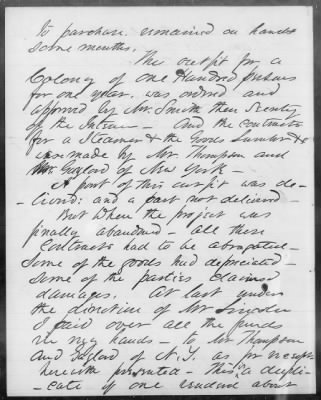 to purchase, remained on hands
some months.
The outfit for a
Colony of one Hundred persons
for one year, was ordered and
approved by Mr. Smith then Secrety
of the Interior - And the contracts
for a Steamer & the Goods Lumber &c
was made by Mr Thompson and
Mr Gaylord of New York -
A part of this outfit was de-
livered; and a part not delivered -
But when the project was
finally abandoned - all these
Contracts had to be abrogated -
Some of the goods had depreciated -
Some of the parties claimed
damages. At last under
the direction of Mr Lincoln
I paid over all the funds
in my hands - to Mr Thompson
And Gaylord of N.Y. as pr receipt
herewith presented - This is a dupli-
-cate of one rendered about